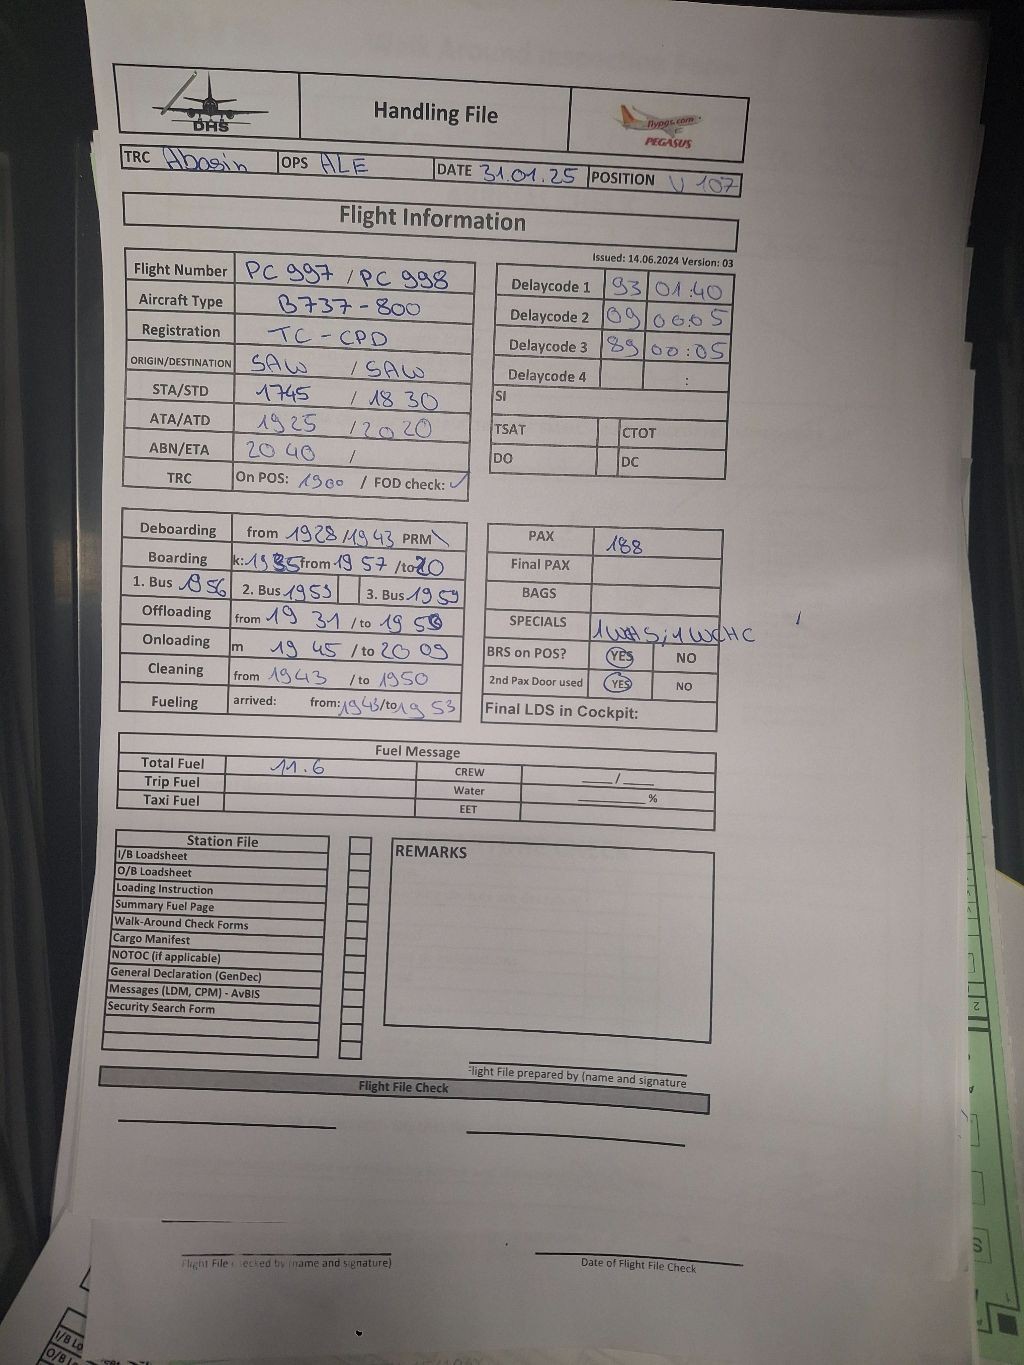 DHS
Handling File
flypgs.com
PEGASUS
TRC Abasin OPS ALE DATE 31.01.25 POSITION V 107
Flight Information
Issued: 14.06.2024 Version: 03
Flight Number PC 997 / PC 998
Aircraft Type B737-800
Registration TC-CPD
ORIGIN/DESTINATION SAW / SAW
STA/STD 1745 / 18 30
ATA/ATD 1925 / 2020
ABN/ETA 20 40 /
TRC On POS: 1900 / FOD check: ✓
Delaycode 1 93 01:40
Delaycode 2 09 00:05
Delaycode 3 89 00:05
Delaycode 4 :
SI
TSAT CTOT
DO DC
Deboarding from 1928 / 1943 PRM \
Boarding k: 1935 from 19 57 / to 20
1. Bus 1956 2. Bus 1959 3. Bus 1959
Offloading from 19 31 / to 19 53
Onloading m 19 45 / to 20 09
Cleaning from 1943 / to 1950
Fueling arrived: from: 1943 / to 19 53
PAX 188
Final PAX
BAGS
SPECIALS 1WHS; 1 WCHC
BRS on POS? YES NO
2nd Pax Door used YES NO
Final LDS in Cockpit:
Fuel Message
Total Fuel 11.6 CREW ___/___
Trip Fuel Water ________%
Taxi Fuel EET
Station File
I/B Loadsheet
O/B Loadsheet
Loading Instruction
Summary Fuel Page
Walk-Around Check Forms
Cargo Manifest
NOTOC (if applicable)
General Declaration (GenDec)
Messages (LDM, CPM) - AvBIS
Security Search Form
REMARKS
Flight File prepared by (name and signature
Flight File Check
Flight File checked by (name and signature)
Date of Flight File Check
I/B Lo
O/B Lo